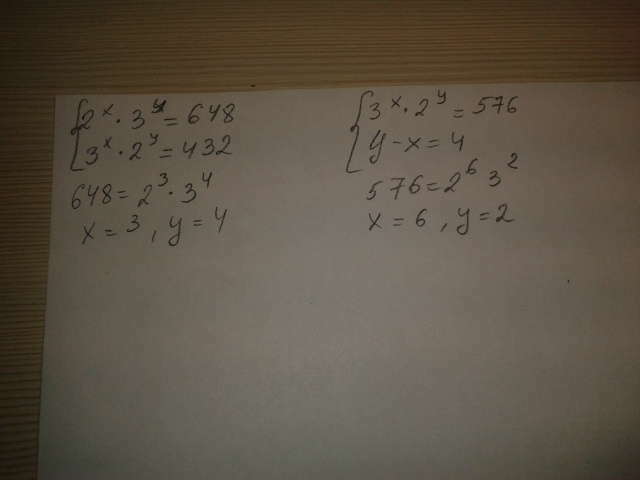 2^x · 3^y = 648
3^x · 2^y = 432
648 = 2^3 · 3^4
x = 3, y = 4
3^x · 2^y = 576
y - x = 4
576 = 2^6 3^2
x = 6, y = 2